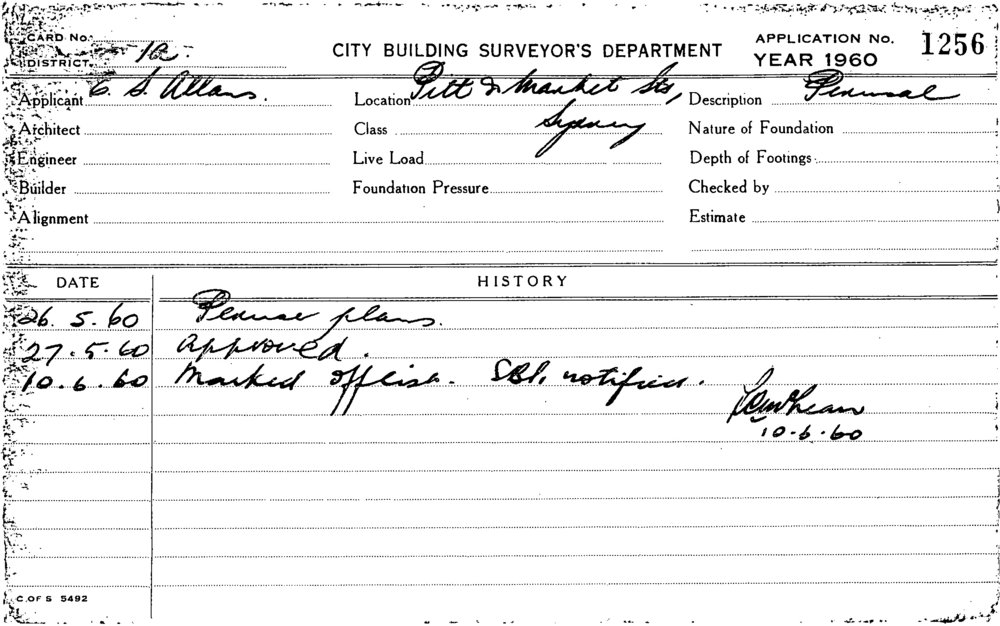 CARD No.
DISTRICT 1a.
CITY BUILDING SURVEYOR'S DEPARTMENT
APPLICATION No. 1256
YEAR 1960
Applicant E. S. Allans.
Location Pitt & Market Sts, Sydney
Description Perusal
Architect
Class
Nature of Foundation
Engineer
Live Load
Depth of Footings
Builder
Foundation Pressure
Checked by
Alignment
Estimate
DATE HISTORY
26. 5. 60 Peruse plans.
27. 5. 60 Approved.
10. 6. 60 Marked off list. notified.
10. 6. 60
C. OF S 5492